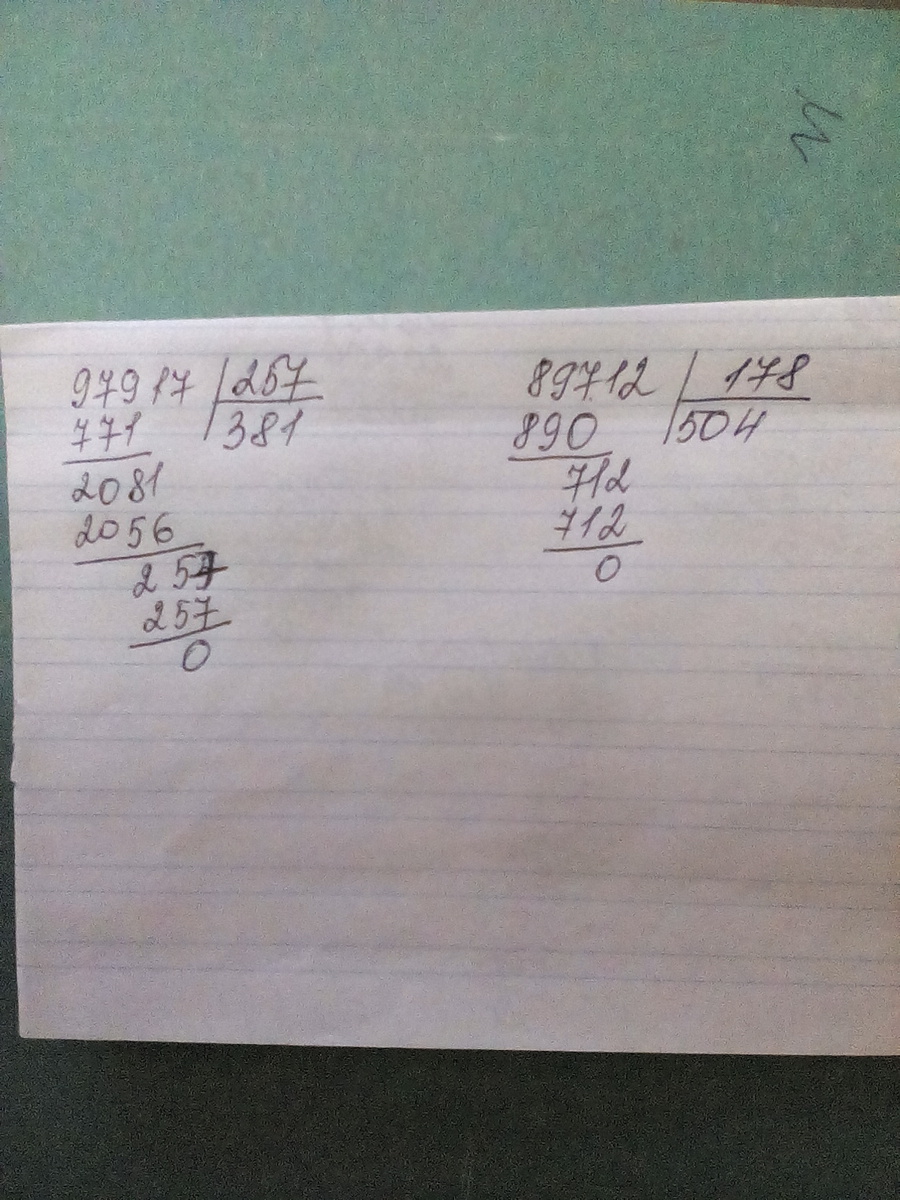 97917 257
771 381
2081
2056
257
257
0
89712 178
890 504
712
712
0